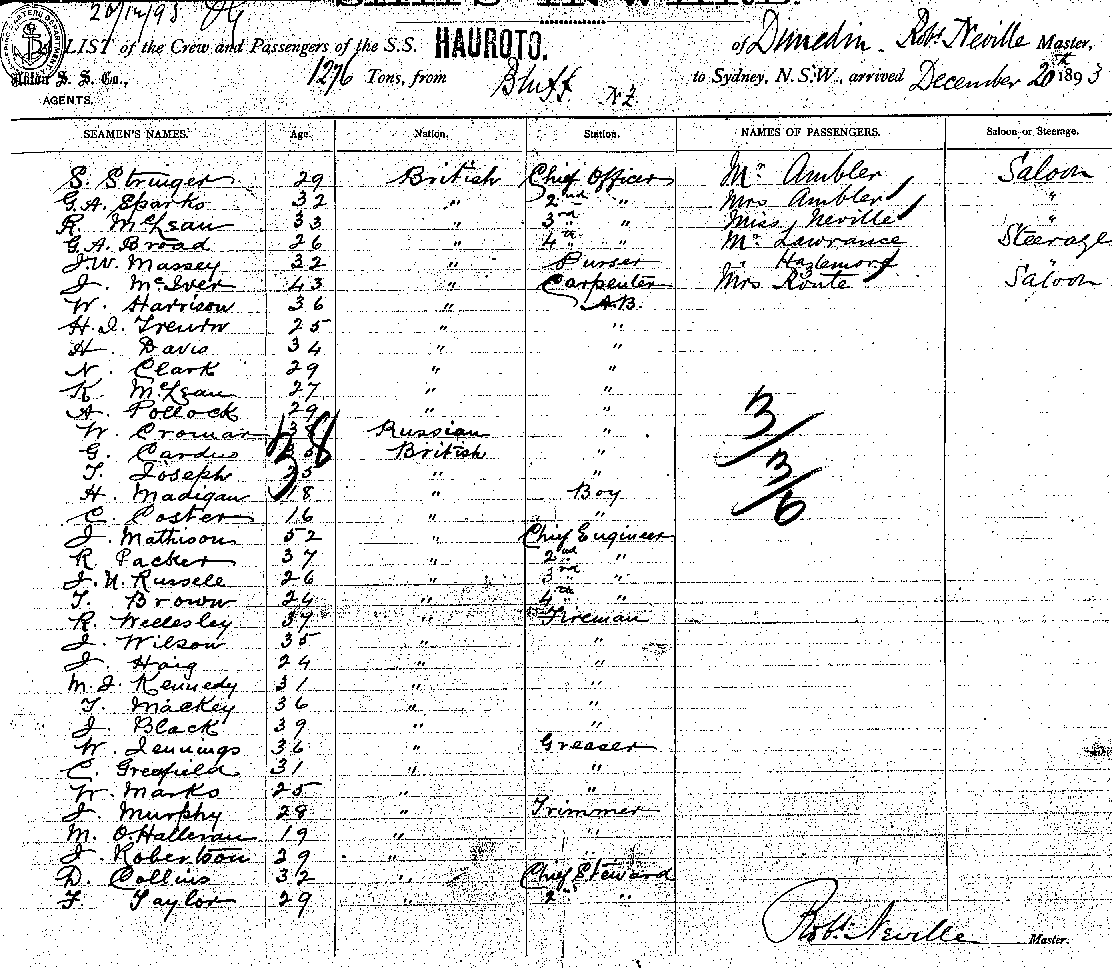 20/12/93
SHIPS INWARD.
LIST of the Crew and Passengers of the S.S. HAUROTO. of Dunedin. Robt Neville Master,
Union S. S. Co., 1276 Tons, from Bluff NZ to Sydney, N.S.W., arrived December 20th 1893
AGENTS.
SEAMEN'S NAMES. Age. Nation. Station. NAMES OF PASSENGERS. Saloon or Steerage.
S. Stringer 29 British Chief Officer Mr Ambler Saloon
G.A. Sparks 32 " 2nd " Mrs Ambler "
R. McLean 33 " 3rd " Miss Neville "
G.A. Broad 26 " 4th " Mr Lawrance Steerage
J.W. Massey 32 " Purser "
J. McIver 43 " Carpenter Mrs Route Saloon
W. Harrison 36 " A.B.
H.J. Trewin 25 "
H. Davis 34 " "
N. Clark 29 " "
K. McLean 27 " "
A. Pollock 29 " "
W. Cromar Russian "
G. Cardno British "
T. Joseph 25 " "
H. Madigan 18 " Boy
C. Coster 16 " "
J. Mathison 52 " Chief Engineer
R Packer 37 " 2nd "
J.N. Russell 26 " 3rd "
T. Brown 24 " 4th "
R. Wellesley 37 " Fireman
J. Wilson 35 " "
J. Haig 24 " "
M.J. Kennedy 31 " "
T. Mackey 36 " "
J. Black 39 " "
W. Jennings 36 " Greaser
C. Greafield 31 " "
W. Marks 25 " "
J. Murphy 28 " Trimmer
M. O.Halleran 19 " "
J. Robertson 29 " "
D. Collins 32 " Chief Steward
F. Taylor 29 " 2nd "
38
3/3/6
Robt. Neville Master.